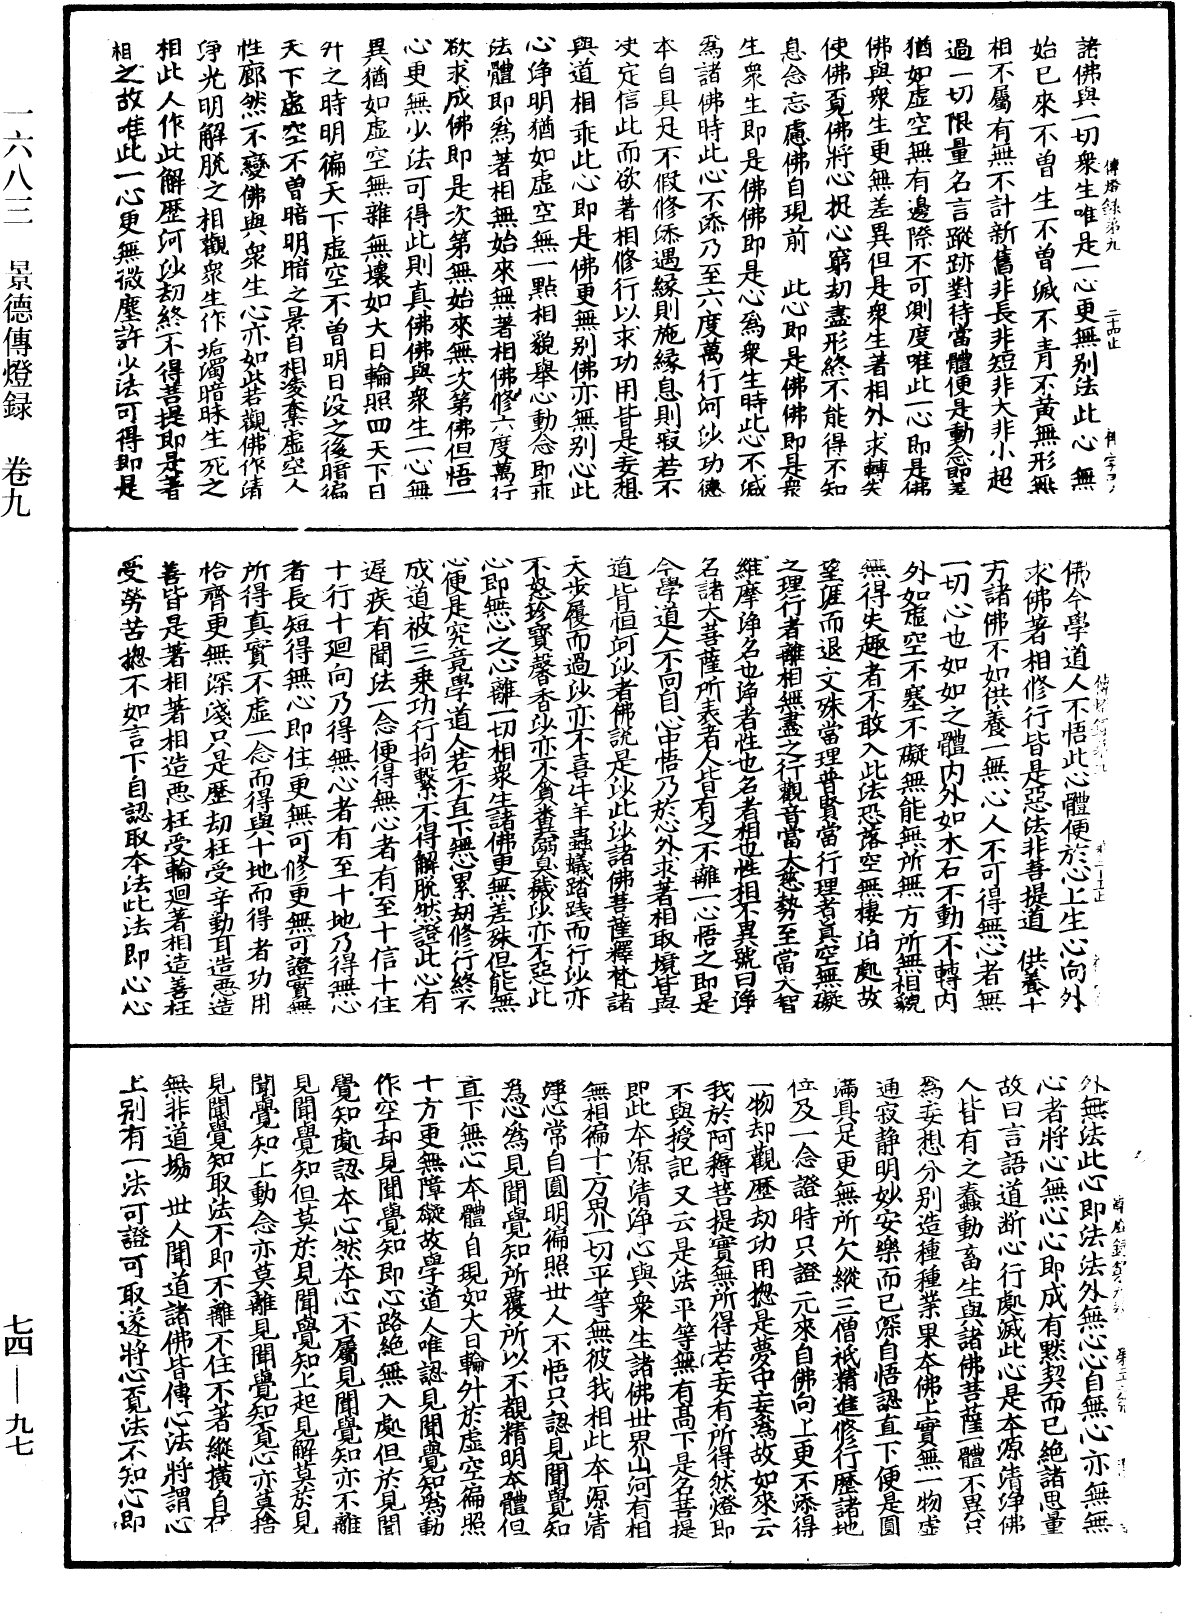 一六八三　景德傳燈録　卷九
七四—九七
傳燈録第九　二十四止
諸佛與一切衆生唯是一心更無别法此心無
始已來不曾生不曾滅不青不黃無形無
相不屬有無不計新舊非長非短非大非小超
過一切限量名言蹤跡對待當體便是動念即差
猶如虛空無有邊際不可測度唯此一心即是佛
佛與衆生更無差異但是衆生著相外求轉失
使佛覓佛將心捉心窮劫盡形終不能得不知
息念忘慮佛自現前　此心即是佛佛即是衆
生衆生即是佛佛即是心爲衆生時此心不滅
爲諸佛時此心不添乃至六度萬行河沙功德
本自具足不假修添遇縁則施縁息則寂若不
决定信此而欲著相修行以求功用皆是妄想
與道相乖此心即是佛更無别佛亦無别心此
心淨明猶如虛空無一點相貌舉心動念即乖
法體即爲著相無始來無著相佛修六度萬行
欲求成佛即是次第無始來無次第佛但悟一
心更無少法可得此則真佛佛與衆生一心無
異猶如虛空無雜無壞如大日輪照四天下日
升之時明徧天下虛空不曾明日没之後暗徧
天下虛空不曾暗明暗之景自相淩奪虛空人
性廓然不變佛與衆生心亦如此若觀佛作清
淨光明解脱之相觀衆生作垢濁暗昧生死之
相此人作此解歷河沙劫終不得菩提即是著
相之故唯此一心更無微塵許少法可得即是
佛今學道人不悟此心體便於心上生心向外
求佛著相修行皆是惡法非菩提道　供養十
方諸佛不如供養一無心人不可得無心者無
一切心也如如之體内外如木石不動不轉内
外如虛空不塞不礙無能無所無方所無相貌
無得失趣者不敢入此法恐落空無棲泊處故
望涯而退文殊當理普賢當行理者真空無礙
之理行者離相無盡之行觀音當大慈勢至當大智
維摩淨名也淨者性也名者相也性相不異號曰淨
名諸大菩薩所表者人皆有之不離一心悟之即是
今學道人不向自心中悟乃於心外求著相取境皆與
道皆恒河沙者佛説是沙此沙諸佛菩薩釋梵諸
天步履而過沙亦不喜牛羊蟲蟻踏踐而行沙亦
不怒珍寶馨香沙亦不貪糞溺臭穢沙亦不惡此
心即無心之心離一切相衆生諸佛更無差殊但能無
心便是究竟學道人若不直下無心累劫修行終不
成道被三乘功行拘繫不得解脱然證此心有
遲疾有聞法一念便得無心者有至十信十住
十行十廻向乃得無心者有至十地乃得無心
者長短得無心即住更無可修更無可證實無
所得真實不虛一念而得與十地而得者功用
恰齊更無深淺只是歷劫枉受辛勤耳造惡造
善皆是著相著相造惡枉受輪廻著相造善枉
受勞苦揔不如言下自認取本法此法即心心
外無法此心即法法外無心心自無心亦無無
心者將心無心心即成有默契而已絶諸思量
故曰言語道斷心行處滅此心是本源清淨佛
人皆有之蠢動畜生與諸佛菩薩一體不異只
爲妄想分别造種種業果本佛上實無一物虛
通寂靜明妙安樂而已深自悟認直下便是圓
滿具足更無所欠縱三僧祇精進修行歷諸地
位及一念證時只證元來自佛向上更不添得
一物却觀歷劫功用揔是夢中妄爲故如來云
我於阿耨菩提實無所得若妄有所得然燈即
不與授記又云是法平等無有高下是名菩提
即此本源清淨心與衆生諸佛世界山河有相
無相徧十方界一切平等無彼我相此本源清
淨心常自圓明徧照世人不悟只認見聞覺知
爲心爲見聞覺知所覆所以不覩精明本體但
直下無心本體自現如大日輪外於虛空徧照
十方更無障礙故學道人唯認見聞覺知爲動
作空却見聞覺知即心路絶無入處但於見聞
覺知處認本心然本心不屬見聞覺知亦不離
見聞覺知但莫於見聞覺知上起見解莫於見
聞覺知上動念亦莫離見聞覺知覓心亦莫捨
見聞覺知取法不即不離不住不著縱横自在
無非道場　世人聞道諸佛皆傳心法將謂心
上别有一法可證可取遂將心覓法不知心即